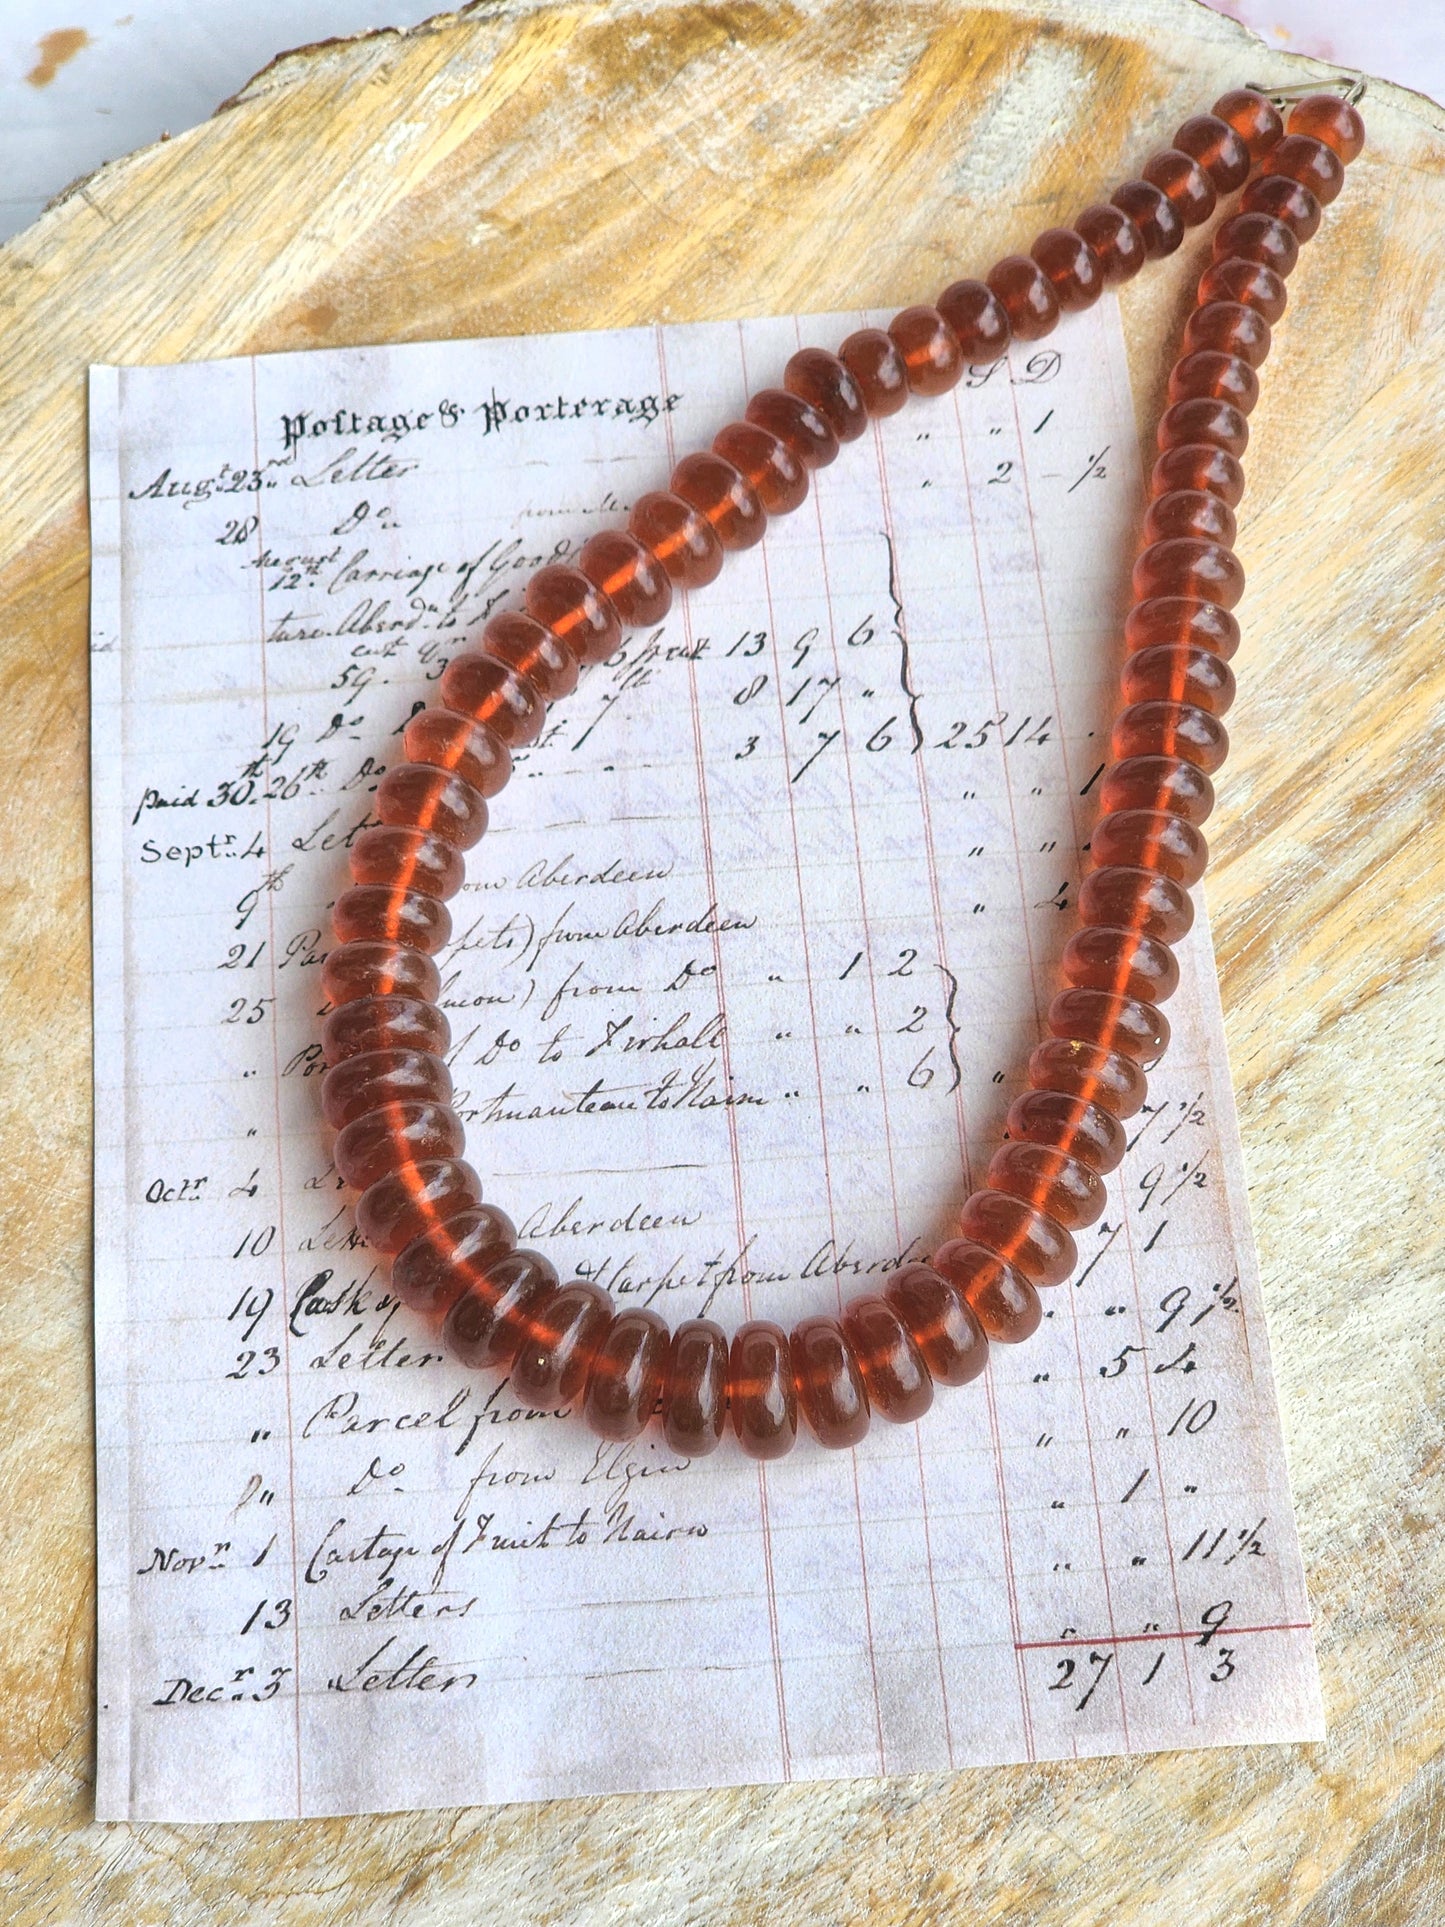 Postage & Porterage
S D
Augt. 23rd Letter " " 1
28 Do. from " 2 - 1/2
August 12th. Carriage of Goods
ture. Aberdn. to
cut qr
59. 3 6 frat 13 9 6
19 Do 8 17 "
paid 30th. 26th Do. 3 7 6 25 14
Septr. 4 Let " " 1
9th om Aberdeen " "
21 Pa pets) from Aberdeen " 4
25 mon) from Do " 1 2
" Por Do to Firhall " " 2
" Portmanteau to Nairn " " 6 " 7 1/2
Octr. 4 L 9 1/2
10 Lett Aberdeen 7 1
19 Cask of & Carpet from Aberd " 9 1/2
23 Letter " 5 4
" Parcel from " " 10
" Do from Elgin " 1 "
Novr. 1 Cartage of Fruit to Nairn " " 11 1/2
13 Letters
Decr. 3 Letter " " 9
27 1 3